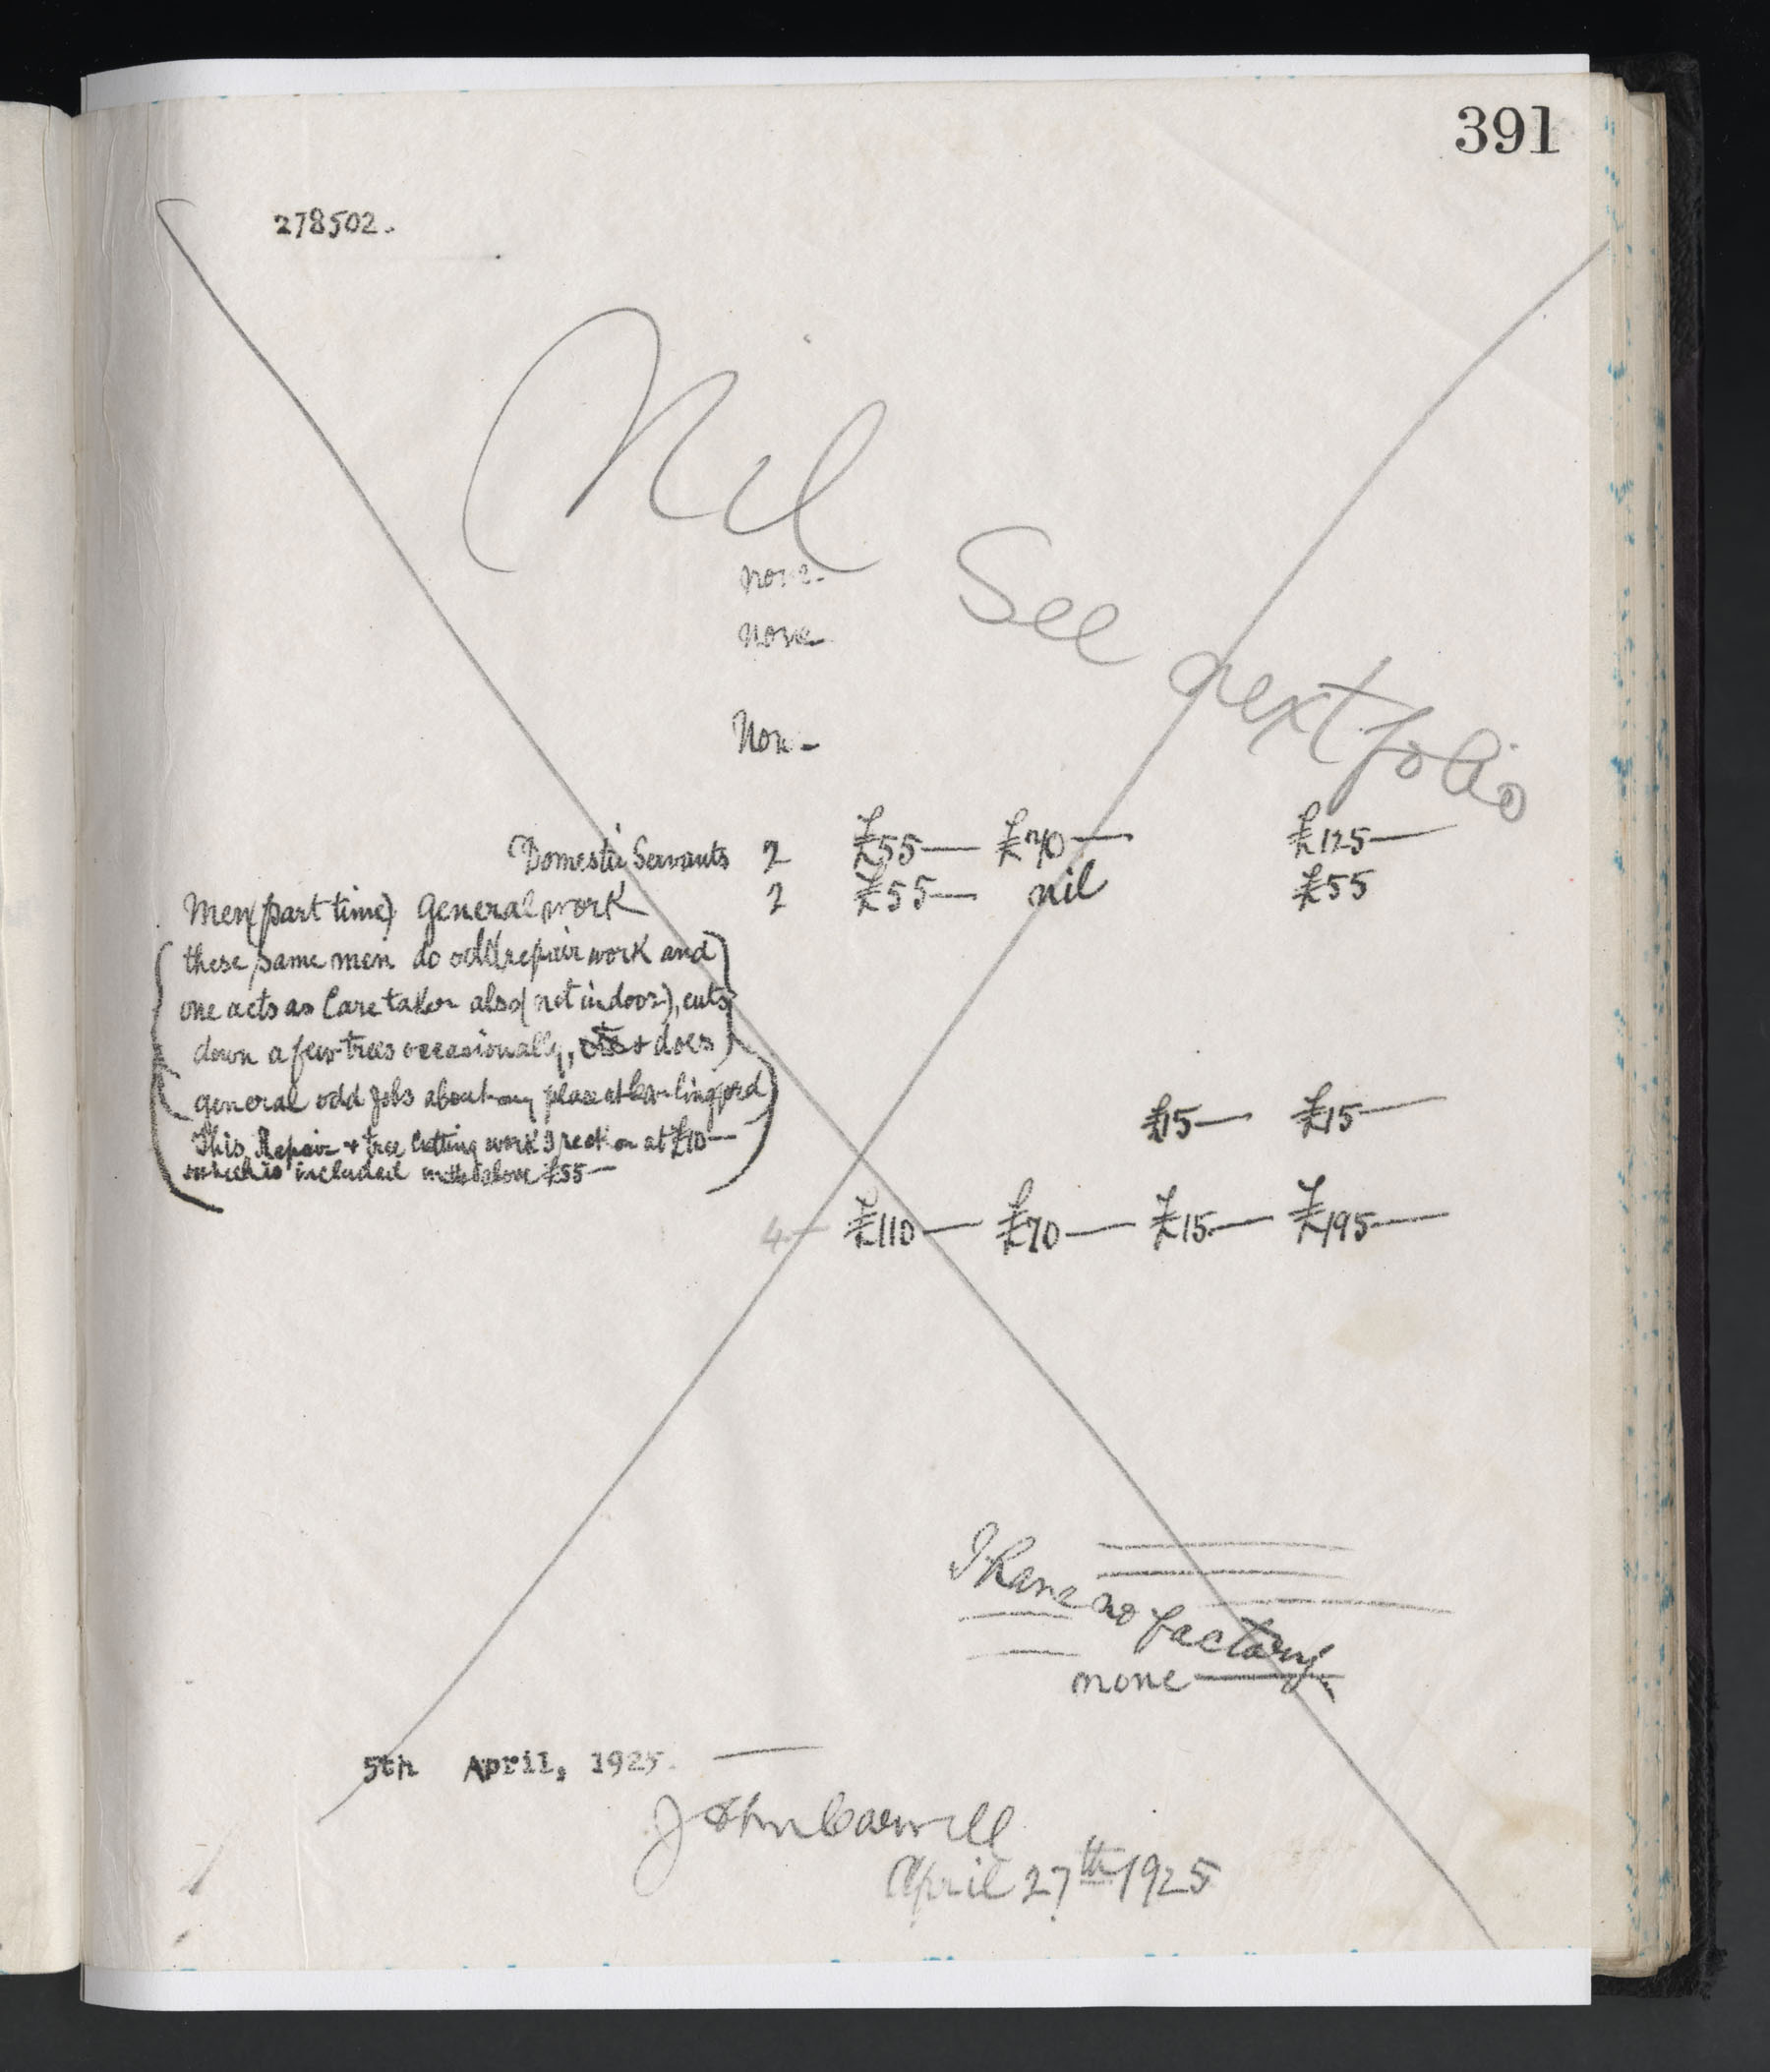 391
278502.
Nil
none
none
See next folio
Non-
Domestic Servants 2 £55— £70— £125—
Men (part time) General work 2 £55— nil £55
these same men do odd repair work and
one acts as Caretaker also (not indoor), cuts
down a few trees occasionally, + does
general odd jobs about my place at Carlingford
£15— £15—
This Repair + tree Cutting work I reckon at £10—
which is included in the above £55—
4 £110— £70— £15— £195—
I have no factory
none
5th April, 1925.
John
April 27th 1925